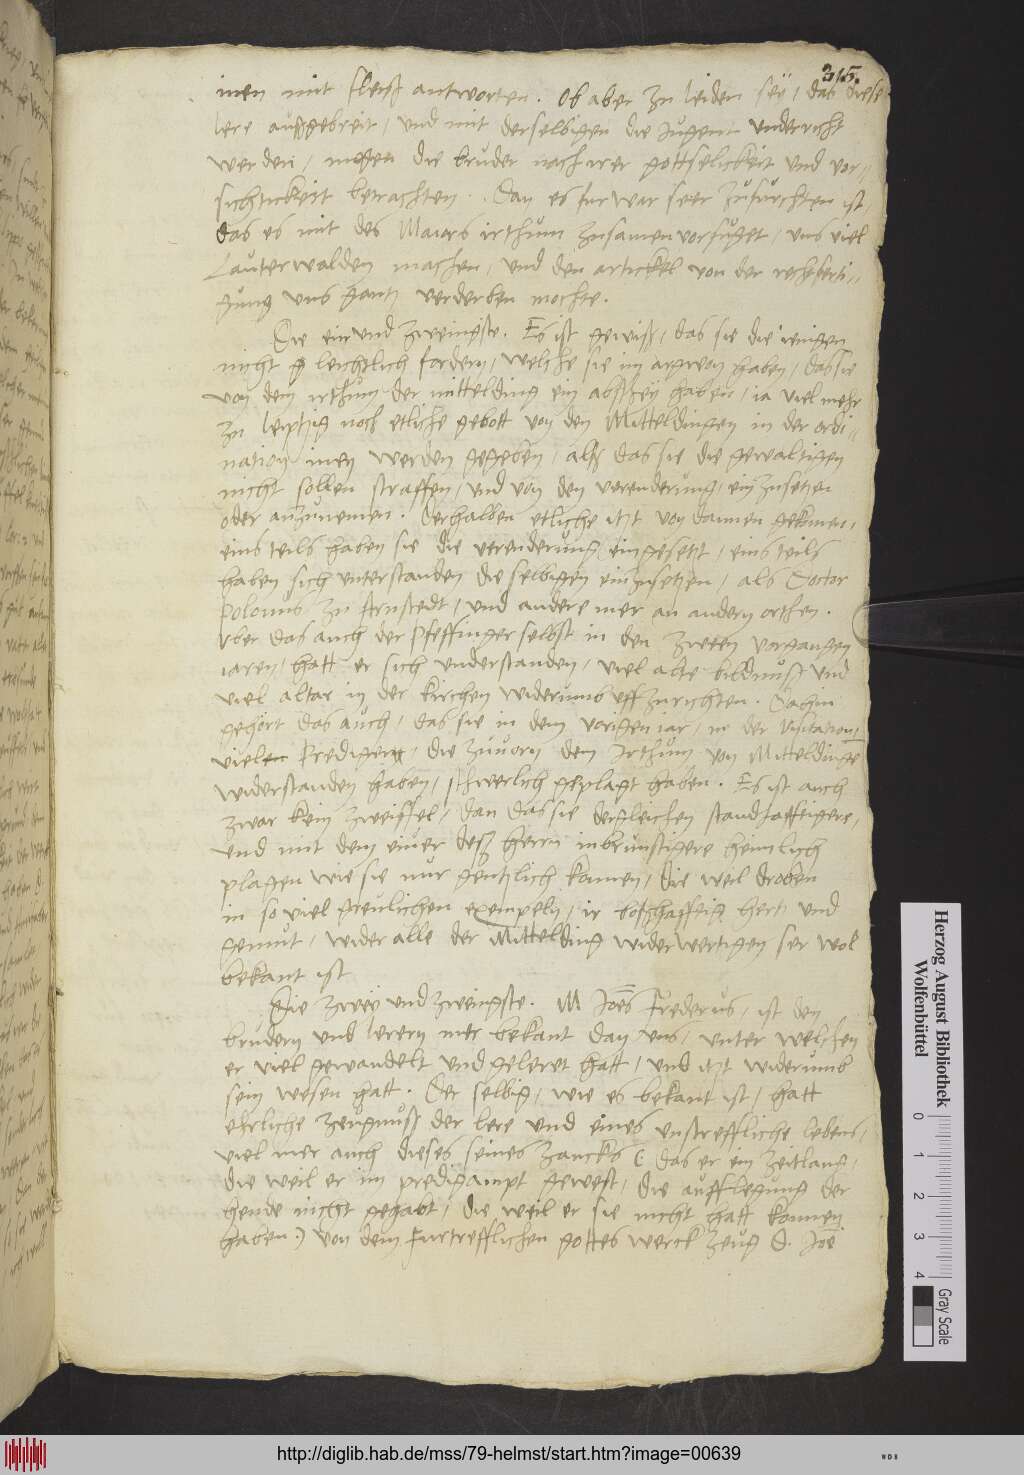 315.
inen mit fleiß antworten. Ob aber zu leiden seÿ, das diese
lere außgebreit, und mit derselbigen die Jugent underricht
werden, mogen die bruder nach irer gottselickeit und vor-,
sichtickeit betrachten. Dan es fur war seer zufurchten ist,
das es mit des Maiors irthum zusamen vorfuget, uns viel
Lauterwalden machen, und den artickel von der rechferti-,
gung uns gantz verderben mochte.
Die ein und zweingste. Es ist gewiß, das sie die ienigen
nicht leichtlich fordern, welche sie im argwon haben, das sie
von dem irthum der mittelding ein abscheÿ haben, ia viel mehr
zu leiptzig noch etliche gebott von den Mitteldingen in der ordi-,
nation inen werden gegeben, alß das sie die gewaltigen
nicht sollen straffen, und von den verenderung, einzusetzen
oder anzunemen. Derhalben etliche itzt von dannen gekomen,
eins teils haben sie die verenderung eingesetzt, eins teils
haben sich unterstanden die selbigen einzusetzen, als Doctor
zu Arnstedt, und andere mer an andern orthen.
Uber das auch der Pfeffinger selbst in den zween vorgangen
iaren, hatt er sich understanden, viel alte bildnuß und
viel altar in der kirchen widerumb uffzurichten. Dahin
gehört das auch, das sie in dem vorigen iar, in der Visitation,
vielen Predigern, die zuvorn dem Irthum von Mitteldinge
widerstanden haben, schwerlich geplagt haben. Es ist auch
zwar kein zweiffel, dan das sie dergleichen standhafftigere,
und mit dem eiuer deß herrn inbrunstigere heimlich
plagen wie sie nur gentzlich konnen, die weil droben
in so viel greulichen exempeln, ir boßhafftig hertz und
gemut, wider alle der Mittelding widerwertigen ser wol
bekant ist
Die zweÿ und zweingste. M Joes Frederus, ist den
brudern und lerern mer bekant dan uns, unter welchen
er viel gewandelt und geleret hatt, und itzt widerumb
sein wesen hatt. Der selbig, wie es bekant ist, hatt
ehrliche zeugnuß der lere und eines unstreffliche lebens,
viel mer auch dieses seines zancks ( das er ein zeitlang,
die weil er im predigampt gewest, die aufflegung der
hende nicht gehabt, die weil er sie nicht hatt konnen
haben.) von dem furtrefflichen gottes werck zeug D. Joe
Herzog August Bibliothek
Wolfenbüttel
0 1 2 3 4
Gray Scale
http://diglib.hab.de/mss/79-helmst/start.htm?image=00639